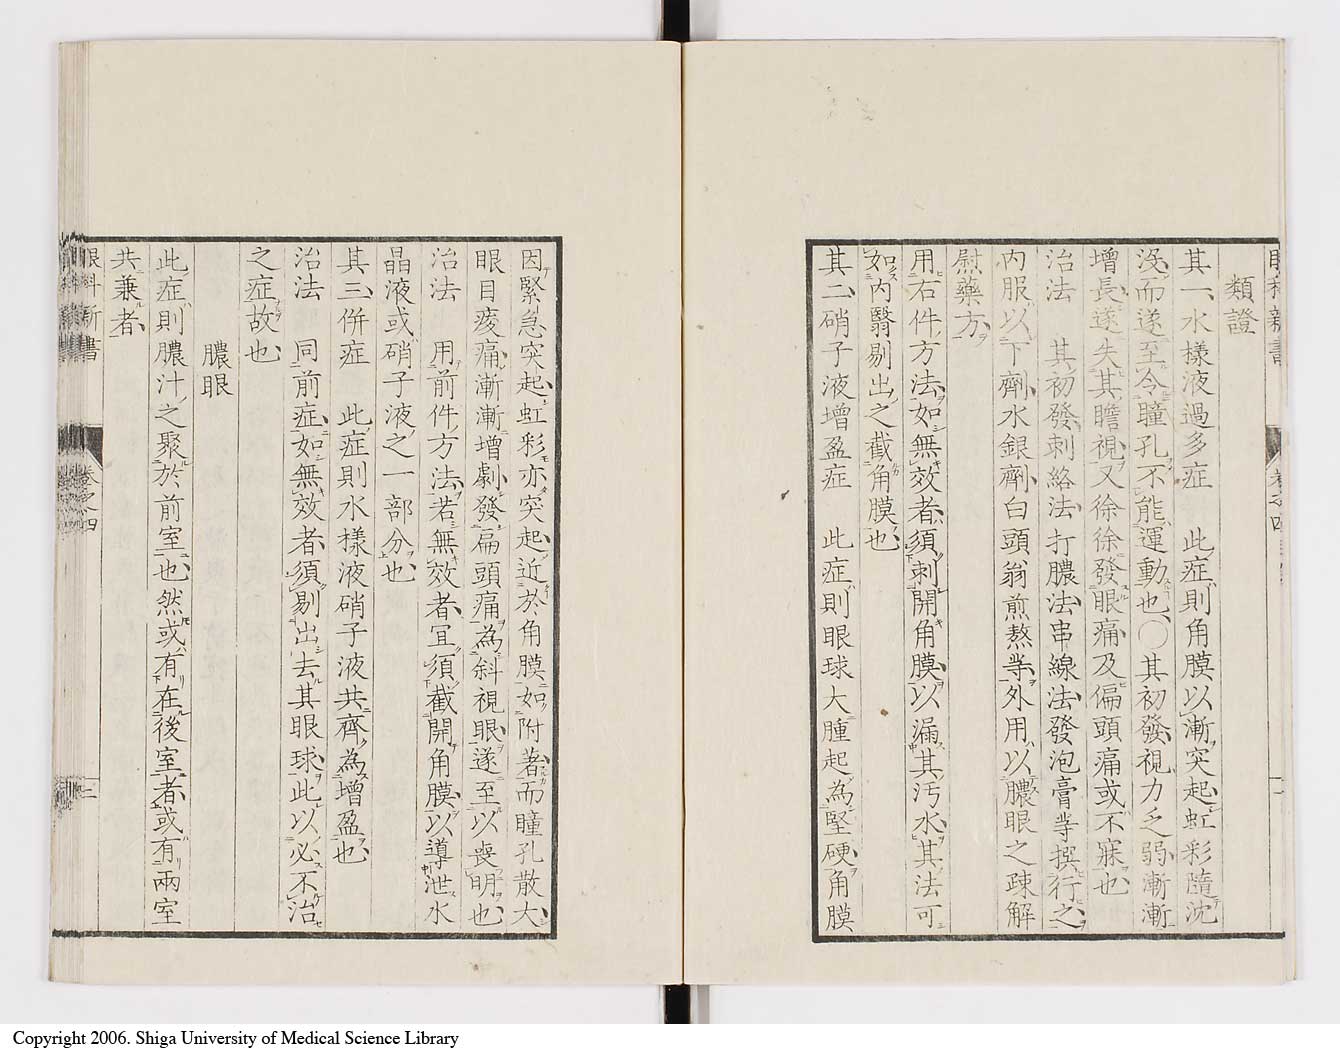 眼科新書
卷之四
類證
其一、水樣液過多症 此症則角膜以漸突起虹彩隨沈
沒而遂至令瞳孔不能運動也、〇其初發視力乏弱漸漸
增長遂失其瞻視又徐徐發眼痛及偏頭痛或不寐也
治法 其初發刺絡法打膿法串線法發泡膏等撰行之
內服以下劑水銀劑白頭翁煎熬等外用以膿眼之疎解
慰藥方
用右件方法如無效者須刺開角膜以漏其汚水其法可
如內翳剔出之截角膜也
其二、硝子液增盈症 此症則眼球大腫起為堅硬角膜
因緊急突起虹彩亦突起近於角膜如附著而瞳孔散大、
眼目痠痛漸漸增劇發扁頭痛為斜視眼遂至以喪明也
治法 用前件方法若無效者宜須截開角膜以導泄水
晶液或硝子液之一部分也
其三、併症 此症則水樣液硝子液共齊為增盈也
治法 同前症如無效者須剔出去其眼球此以必不治
之症故也
膿眼
此症則膿汁之聚於前室也然或有在後室者或有兩室
共兼者、
眼科新書
卷之四
三
Copyright 2006. Shiga University of Medical Science Library